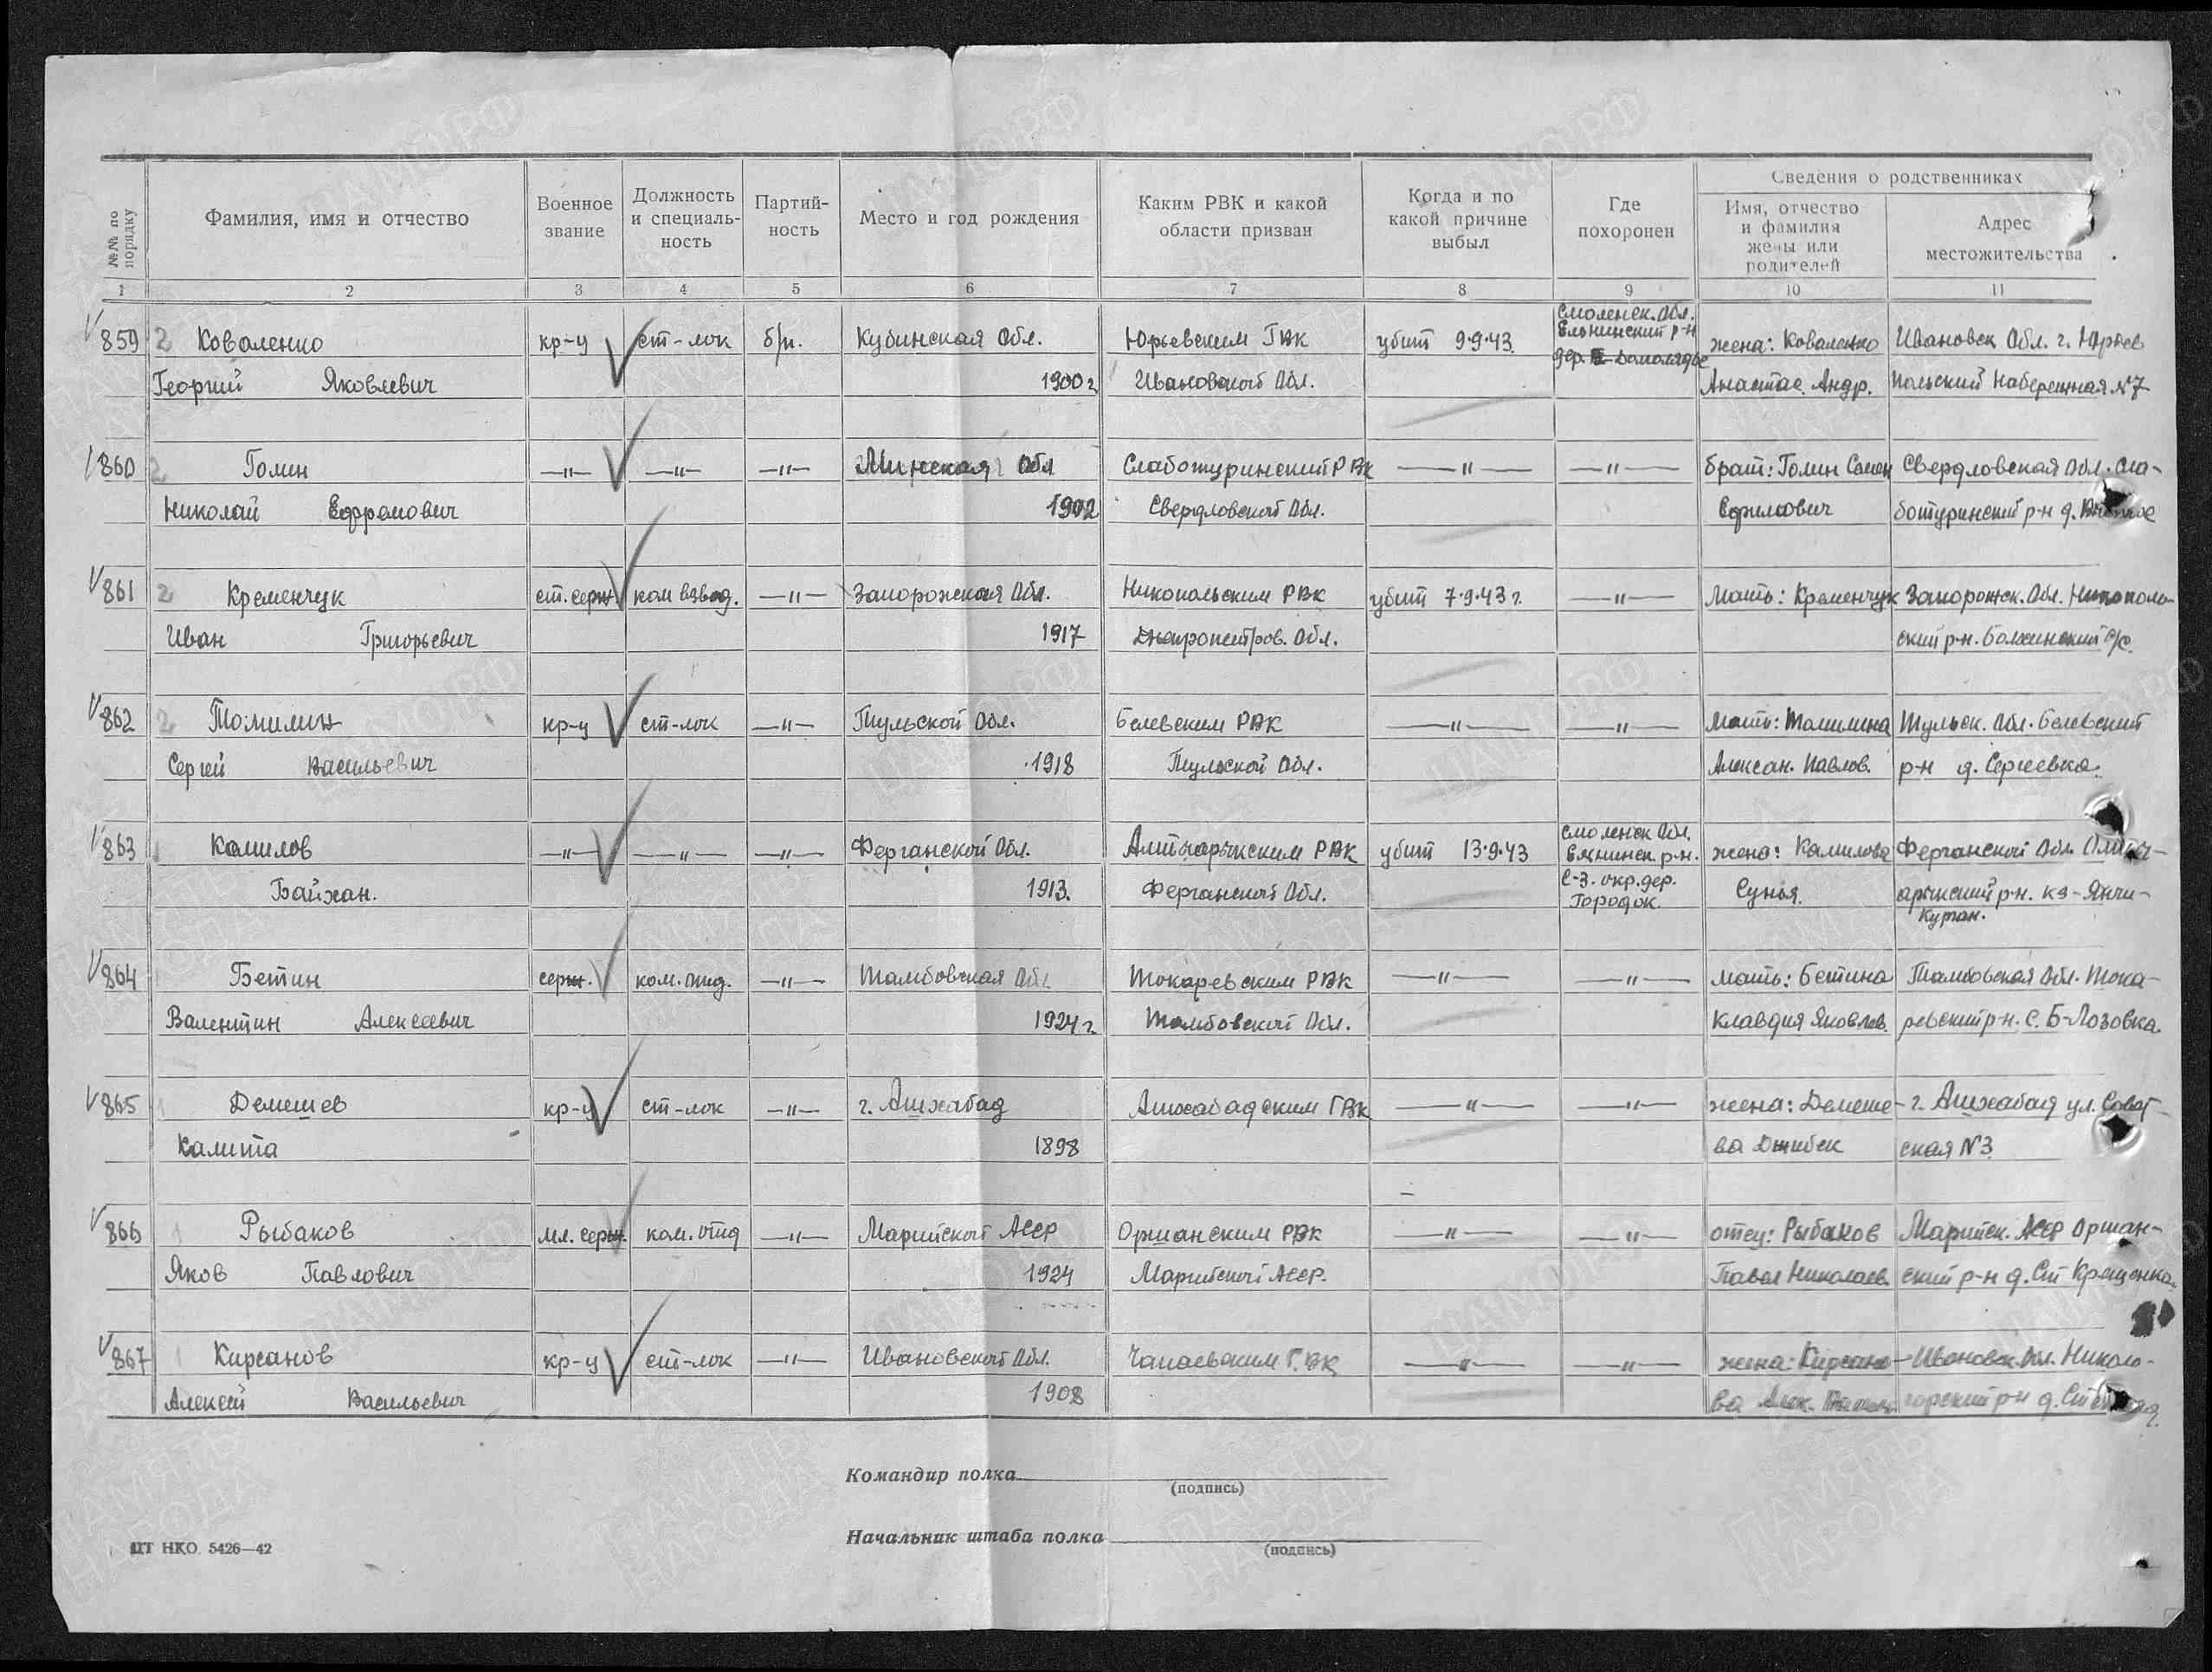 №№ по порядку
Фамилия, имя и отчество
Военное звание
Должность и специаль-ность
Партий-ность
Место и год рождения
Каким РВК и какой области призван
Когда и по какой причине выбыл
Где похоронен
Сведения о родственниках
Имя, отчество и фамилия жены или родителей
Адрес местожительства
1 2 3 4 5 6 7 8 9 10 11
Смоленск. Обл.
Ельнинский р-н
859 2 Коваленко кр-ц ст-лок б/п. Кубинская Обл. Юрьевским ГВК убит 9.9.43. дер. жена: Коваленко Ивановск Обл. г. Юрьев
Георгий Яковлевич 1900 г. Ивановской Обл. Анастас. Андр. Польский Набережная №7
860 2 Голин —"— —"— —"— Минская Обл Слаботуринский РВК —"— —"— брат: Голин Семен Свердловская Обл. Сла-
Николай Ефремович 1902 Свердловской Обл. Ефимович ботуринский р-н д.
861 2 Кременчук ст. серж ком взвод. —"— Запорожская Обл. Никопольским РВК убит 7.9.43 г. —"— Мать: Кременчук Запорожск. Обл. Никополь-
Иван Григорьевич 1917 Днепропетров. Обл. ский р-н. с/с.
862 2 Томилин кр-ц ст-лок —"— Тульской Обл. Белевским РВК —"— —"— Мать: Томилина Тульск. Обл. Белевский
Сергей Васильевич 1918 Тульской Обл. Алексан. Павлов. р-н д. Сергеевка.
Смоленск Обл.
863 1 Камилов —"— —"— —"— Ферганской Обл. Алтыарыкским РВК убит 13.9.43 р-н. жена: Камилова Ферганской Обл. Алты-
Байхан. 1913. Ферганской Обл. С-З. окр. дер. Городок. Сунья. арыкский р-н. кз - Янги-
Курган.
864 1 Бетин серж. ком. отд. —"— Тамбовская Обл. Токаревским РВК —"— —"— мать: Бетина Тамбовская Обл. Тока-
Валентин Алексеевич 1924 г. Тамбовской Обл. Клавдия Яковлев. ревский р-н. с. Б-Лозовка.
865 1 Демешев кр-ц ст-лок —"— г. Ашхабад Ашхабадским ГВК —"— —"— жена: Демеше- г. Ашхабад ул. Совет-
Калита 1898 ва Джибек ская №3
866 1 Рыбаков мл. серж. ком. отд —"— Марийской Асср Оршанским РВК —"— —"— отец: Рыбаков Марийск. Асср Оршан-
Яков Павлович 1924 Марийской Асср. Павел Николаев. ский р-н д. Ст Крещенка.
867 1 Кирсанов кр-ц ст-лок —"— Ивановской Обл. Чапаевским Г.ВК —"— —"— жена: Кирсано- Ивановск. Обл. Николо-
Алексей Васильевич 1908 ва горский р-н д.
Командир полка
(подпись)
Начальник штаба полка
(подпись)
ЦТ НКО. 5426—42